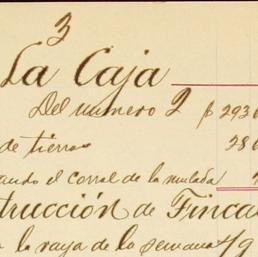 3
La Caja
Del numero 2 $ 293
de tierra 28
ando el corral de la mulada
trucción de Finca
la raya de la semana